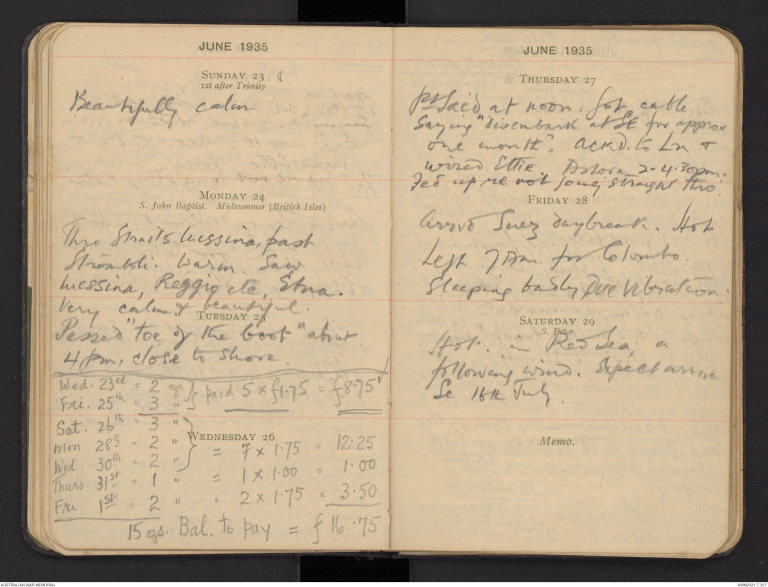 JUNE 1935
SUNDAY 23 ☾
1st after Trinity
Beautifully calm
MONDAY 24
S. John Baptist. Midsummer (British Isles)
Thro Straits Messina, past
Stromboli. Warm Saw
Messina, Reggio etc, Etna.
Very calm & beautiful.
TUESDAY 25
Passed "toe of the boot" about
4 pm, close to shore
Wed. 23rd = 2 gs } paid 5 x £1.75 = £8.75
Fri. 25th = 3 "
Sat. 26th = 3 "
WEDNESDAY 26
Mon 28th = 2 " } = 7 x 1.75 = 12.25
Wed 30th = 2 "
Thurs 31st = 1 " = 1 x 1.00 = 1.00
Fri 1st = 2 " = 2 x 1.75 = 3.50
15 gs. Bal. to pay = £16.75
JUNE 1935
THURSDAY 27
Pt Said at noon. Got cable
Saying "disembark at SE for approx
one month". Ackd. to Ln &
wired Ettie. Ashore 2-4.30pm.
Fed up re not going straight thro
FRIDAY 28
Arrive Suez daybreak. Hot
Left 7 AM for Colombo.
Sleeping badly Due Vibration.
SATURDAY 29
S. Peter
Hot. in Red Sea, a
following wind. Expect arrive
Se 16th July.
Memo.
AUSTRALIAN WAR MEMORIAL